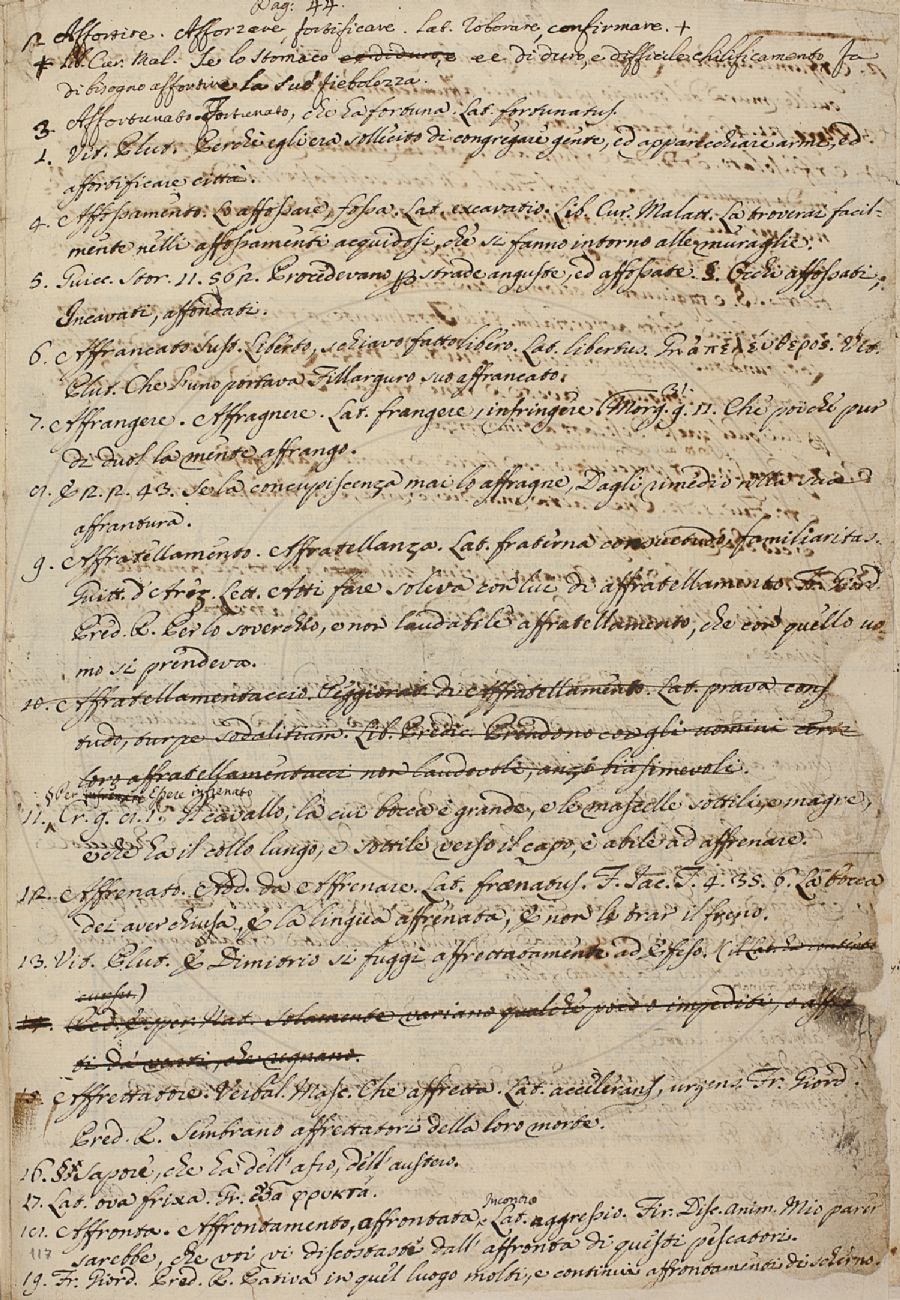 Pag: 44.
2 Affortire. Afforzare fortificare. Lat. roborare, confirmare. +
+ Lib. Cur. Mal. Se lo stomaco è di duro, e difficile chilificamento fa
di bisogno affortire la sua fiebolezza.
3. Affortunato. Fortunato, che ha fortuna. Lat. fortunatus.
1. Vit. Plut. Perchè egli era sollecito di congregare gente, ed apparecchiare arme, ed
affortificare città.
4. Affossamento. Lo affossare, fossa. Lat. excavatio. Lib. Cur. Malatt. La troverai facil-
mente nelli affossamenti acquidosi, che si fanno intorno alle muraglie.
5. Guicc. Stor. 11. 562. Procedevano p strade anguste, ed affossate. §. Occhi affossati,
Incavati, affondati.
6. Affrancato Sust. Liberto, schiavo fatto libero. Lat. libertus. Gr. ἀπελεύθερος. Vit.
Plut. Che l'uno portava Fillarguro suo affrancato.
7. Affrangere. Affragnere. Lat. frangere, infringere (Morg. 9. 11. Che poichè pur
31.
di duol la mente affrango.
8. E 2. 2. 43. Se la concupiscenza mai lo affragne, Dagli rimedio
affrantura.
9. Affratellamento. Affratellanza. Lat. fraterna consuetudo, familiaritas.
Guitt. d'Arez. Lett. Atti fare soleva con lui di affratellamento. Fr. Giord.
Pred. R. Per lo soverchio, e non laudabile affratellamento, che con quello uo-
mo si prendeva.
10. Affratellamentaccio. Peggiorat. di Affratellamento. Lat. prava cons
tudo, turpe sodalitium. Lib. Predic. Prendono con gli uomini
loro affratellamentacci non laudevoli, anzi biasimevoli.
§ Per Essere infrenato
11. Cr. 9. 8. 1. Il cavallo, la cui bocca è grande, e le mascelle sottili, e magre,
e che ha il collo lungo, e sottile verso il capo, è abile ad affrenare.
12. Affrenato. Add. da Affrenare. Lat. frœnatus. F. Jac. T. 4. 35. 6. La bocca
dei aver chiusa, E la lingua affrenata, E non le trar il freno.
13. Vit. Plut. E Dimitrio si fuggì affrettatamente ad Efeso. (il Lat. ha
cursu)
14. Red. Esper. Nat. Solamente variano qualche poco o impediti, o affret
ti da' venti, che regnano.
15. Affrettatore. Verbal. Masc. Che affretta. Lat. accelerans, urgens. Fr. Giord.
Pred. R. Sembrano affrettatori della loro morte.
16. § Sapore, che ha dell'afro, dell'austero.
17. Lat. ova frixa. Gr. ὠὰ φρυκτά.
Incontro
18. Affronta. Affrontamento, affrontata. Lat. aggressio. Fir. Disc. anim. Mio parer
sarebbe, che voi vi discostaste dall'affronta di questi pescatori.
117
19. Fr. Giord. Pred. R. Pativa in quel luogo molti, e continui affrontamenti di scherno.